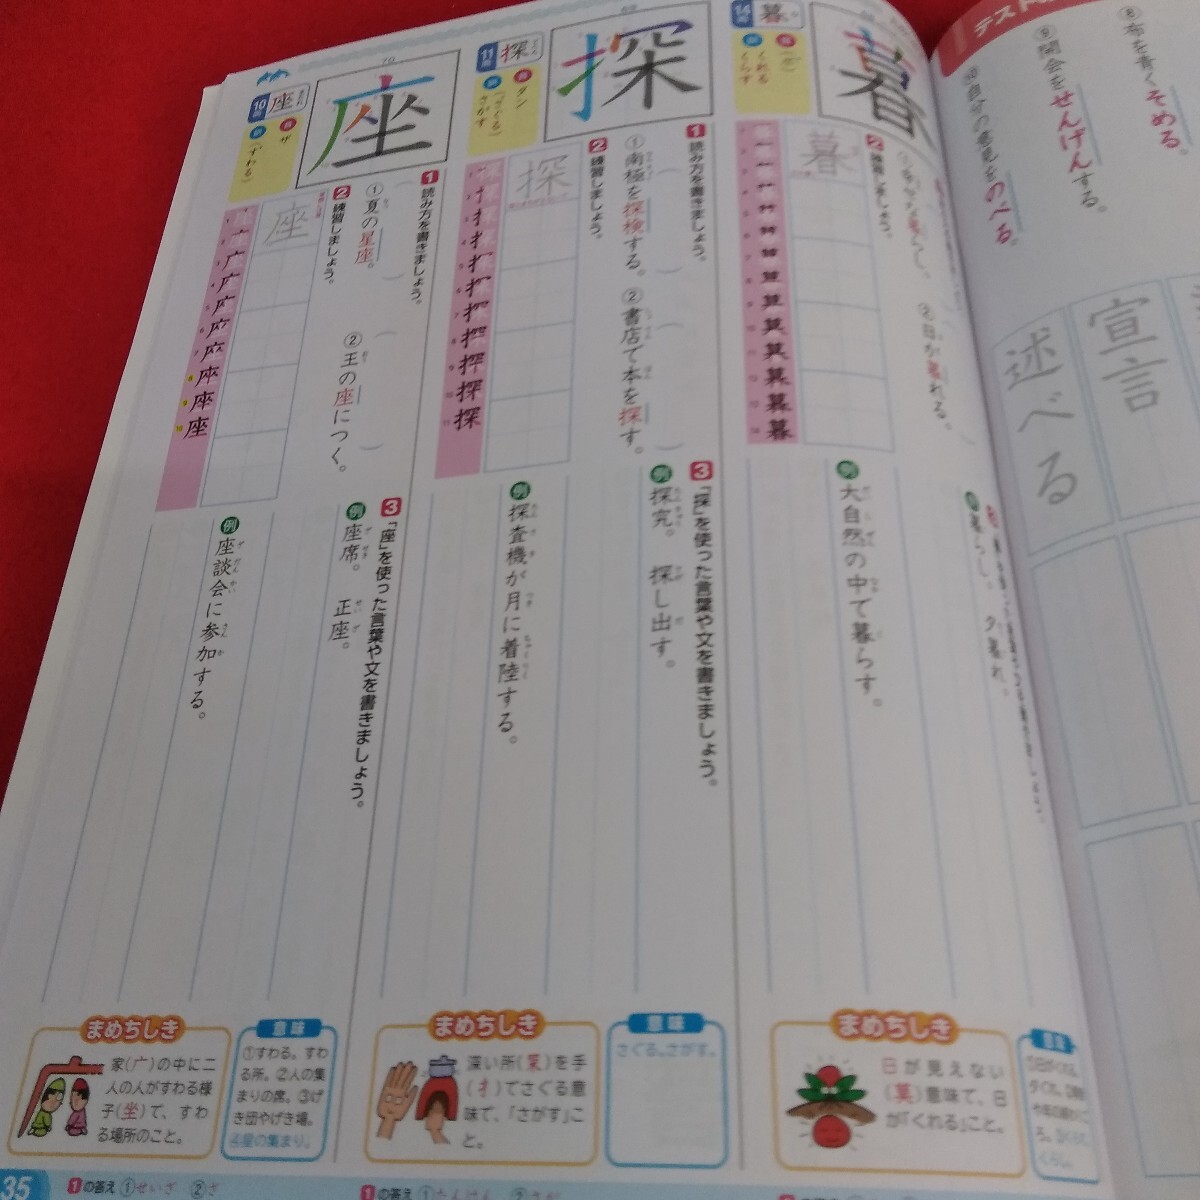 テスト
⑧布を青くそめる。
⑨開会をせんげんする。
⑩自分の意見をのべる。
宣言
述べる
14画
暮
くれる
くらす
暮
2 練習しましょう。
②日が暮れる。
暮らし。 夕暮れ。
例 大自然の中で暮らす。
まめちしき
日が見えない(莫)意味で、日が「くれる」こと。
意味
69
11画
探
タン
(さぐる)
さがす
探
1 読み方を書きましょう。
①南極を探検する。
②書店で本を探す。
2 練習しましょう。
探
3 「探」を使った言葉や文を書きましょう。
例 探究。 探し出す。
例 探査機が月に着陸する。
まめちしき
深い所(罙)を手(扌)でさぐる意味で、「さがす」こと。
意味
さぐる。さがす。
70
10画
座
ザ
(すわる)
座
1 読み方を書きましょう。
①夏の星座。
②王の座につく。
2 練習しましょう。
座
3 「座」を使った言葉や文を書きましょう。
例 座席。 正座。
例 座談会に参加する。
まめちしき
家(广)の中に二人の人がすわる様子(坐)で、すわる場所のこと。
意味
①すわる。すわる所。②人の集まりの席。③げき団やげき場。④星の集まり。
35
1の答え ①せいざ ②ざ
1の答え ①たんけん ②さが